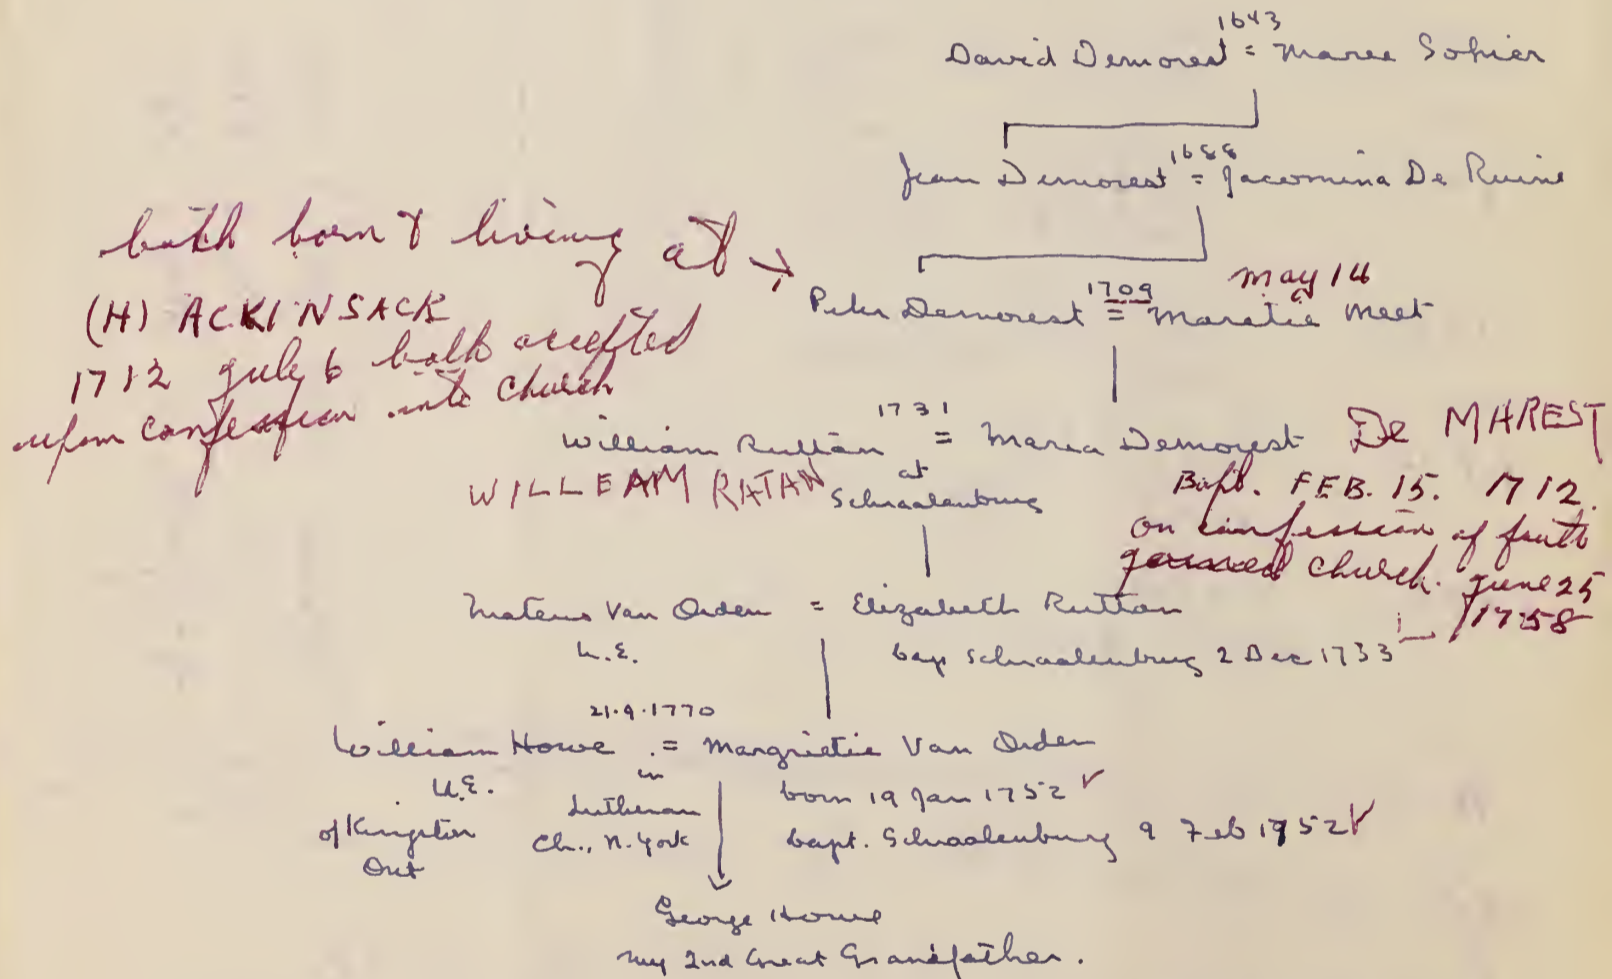 1643
David Demorest = Maree Sohier
1688
Jean Demorest = Jacomina De Ruine
both born & living at →
(H) ACKINSACK
1712 July 6 both accepted
upon confession into church
1709 May 14
Peter Demorest = Maratie Meet
1731
William Ruttan = Maria Demorest De MAREST
WILLEAM RATAN
at
Schraalenburg
Bapt. FEB. 15. 1712.
on confession of faith
joined church. June 25
1758
Mateus Van Orden = Elizabeth Ruttan
U.E.
bap Schraalenburg 2 Dec 1733
21.9.1770
William Howe = Margrietie Van Orden
U.E.
of Kingston
Ont
in
Lutheran
Ch., N. York
born 19 Jan 1752 ✓
bapt. Schraalenburg 9 Feb 1752 ✓
George Howe
my 2nd Great Grandfather.